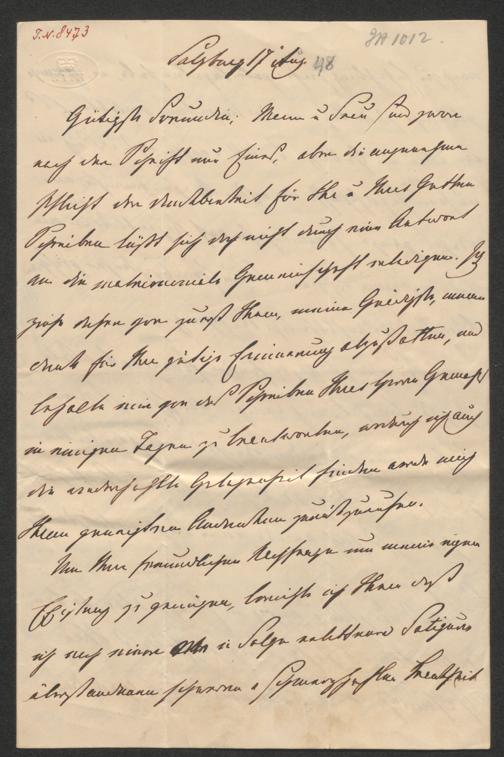 I.N. 8473
JA 1012.
Salzburg 17 Aug 48
Gütigste Freundin, Mann u Frau sind zwar
nach der Schrift nur Eins, aber die angenehme
Pflicht der Dankbarkeit für Ihr u Ihres Gatten
Schreiben läßt sich doch nicht durch eine Antwort
an die matrimonielle Gemeinschaft erledigen. Ich
ziehe daher vor zuerst Ihnen, meine Gnädigste, meinen
Dank für Ihre gütige Erinnerung abzustatten, und
behalte mir vor das Schreiben Ihres Herrn Gemahls
in einigen Tagen zu beantworten, wodurch ich auch
die wiederholte Gelegenheit finden werde mich
Ihrem geneigten Andenken zurückzurufen.
Um Ihre freundlichen Nachfrage um meine
zu genügen, berichte ich Ihnen daß
ich nach einer in Folge
überstandenen schweren u schmerzhaften Krankheit